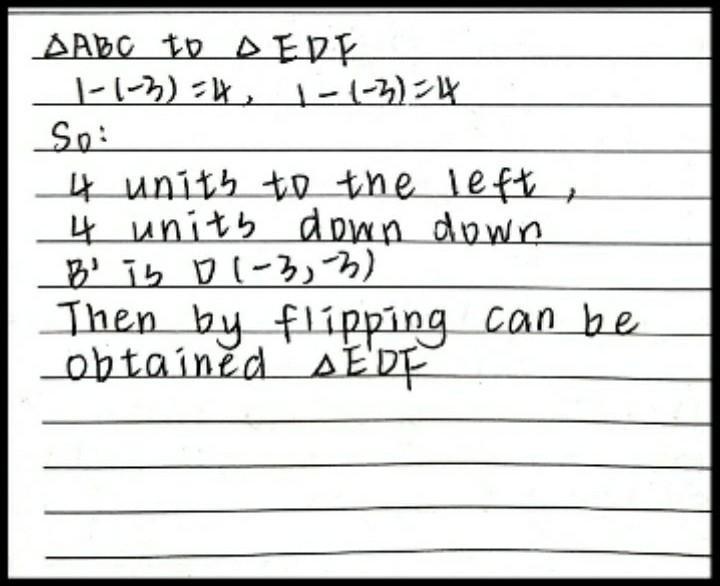 △ABC to △EDF
1-(-3)=4, 1-(-3)=4
So:
4 units to the left,
4 units down down
B' is D(-3,-3)
Then by flipping can be
obtained △EDF